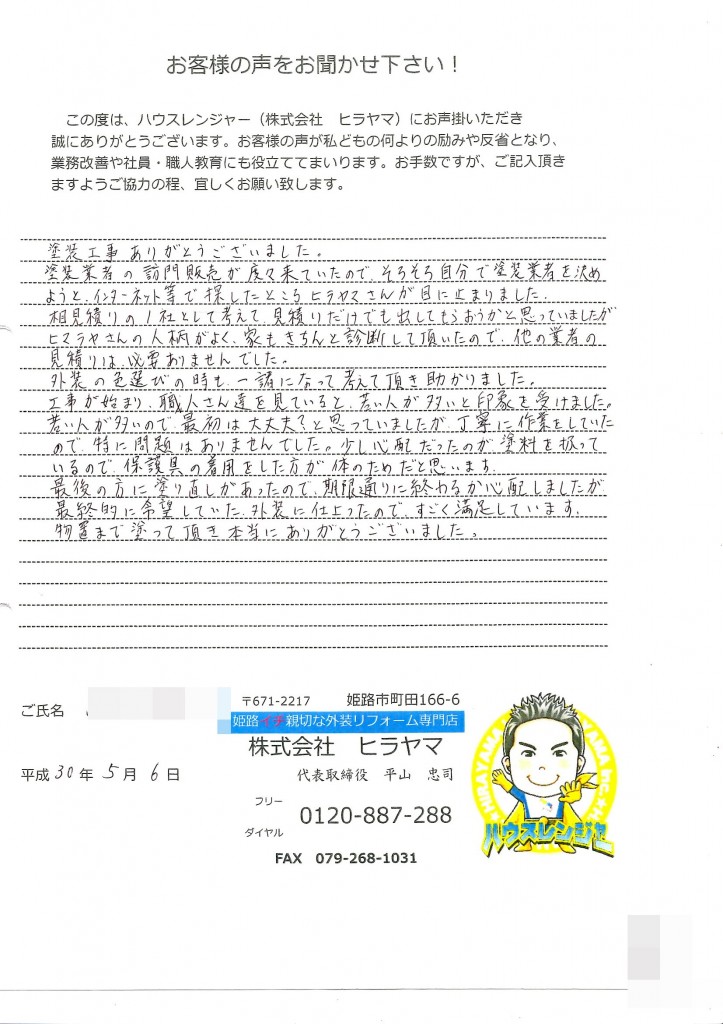 お客様の声をお聞かせ下さい！
この度は、ハウスレンジャー（株式会社　ヒラヤマ）にお声掛いただき
誠にありがとうございます。お客様の声が私どもの何よりの励みや反省となり、
業務改善や社員・職人教育にも役立ててまいります。お手数ですが、ご記入頂き
ますようご協力の程、宜しくお願い致します。
塗装工事ありがとうございました。
塗装業者の訪問販売が度々来ていたので、そろそろ自分で塗装業者を決め
ようと、インターネット等で探したところヒラヤマさんが目に止まりました。
相見積りの1社として考えて、見積りだけでも出してもらおうかと思っていましたが
ヒラヤマさんの人柄がよく、家もきちんと診断して頂いたので、他の業者の
見積りは、必要ありませんでした。
外装の色選びの時も、一諸になって考えて頂き助かりました。
工事が始まり、職人さん達を見ていると、若い人が多いと印象を受けました。
若い人が多いので、最初は大丈夫？と思っていましたが、丁寧に作業をしていた
ので、特に問題はありませんでした。少し心配だったのが塗料を扱って
いるので、保護具の着用をした方が体のためだと思います。
最後の方に塗り直しがあったので、期限通りに終わるか心配しましたが
最終的に希望していた、外装に仕上ったので、すごく満足しています。
物置まで塗って頂き本当にありがとうございました。
ご氏名
〒671-2217　姫路市町田166-6
姫路イチ親切な外装リフォーム専門店
株式会社　ヒラヤマ
平成30年5月6日
代表取締役　平山　忠司
フリーダイヤル 0120-887-288
FAX 079-268-1031
HIRAYAMA
ハウスレンジャー